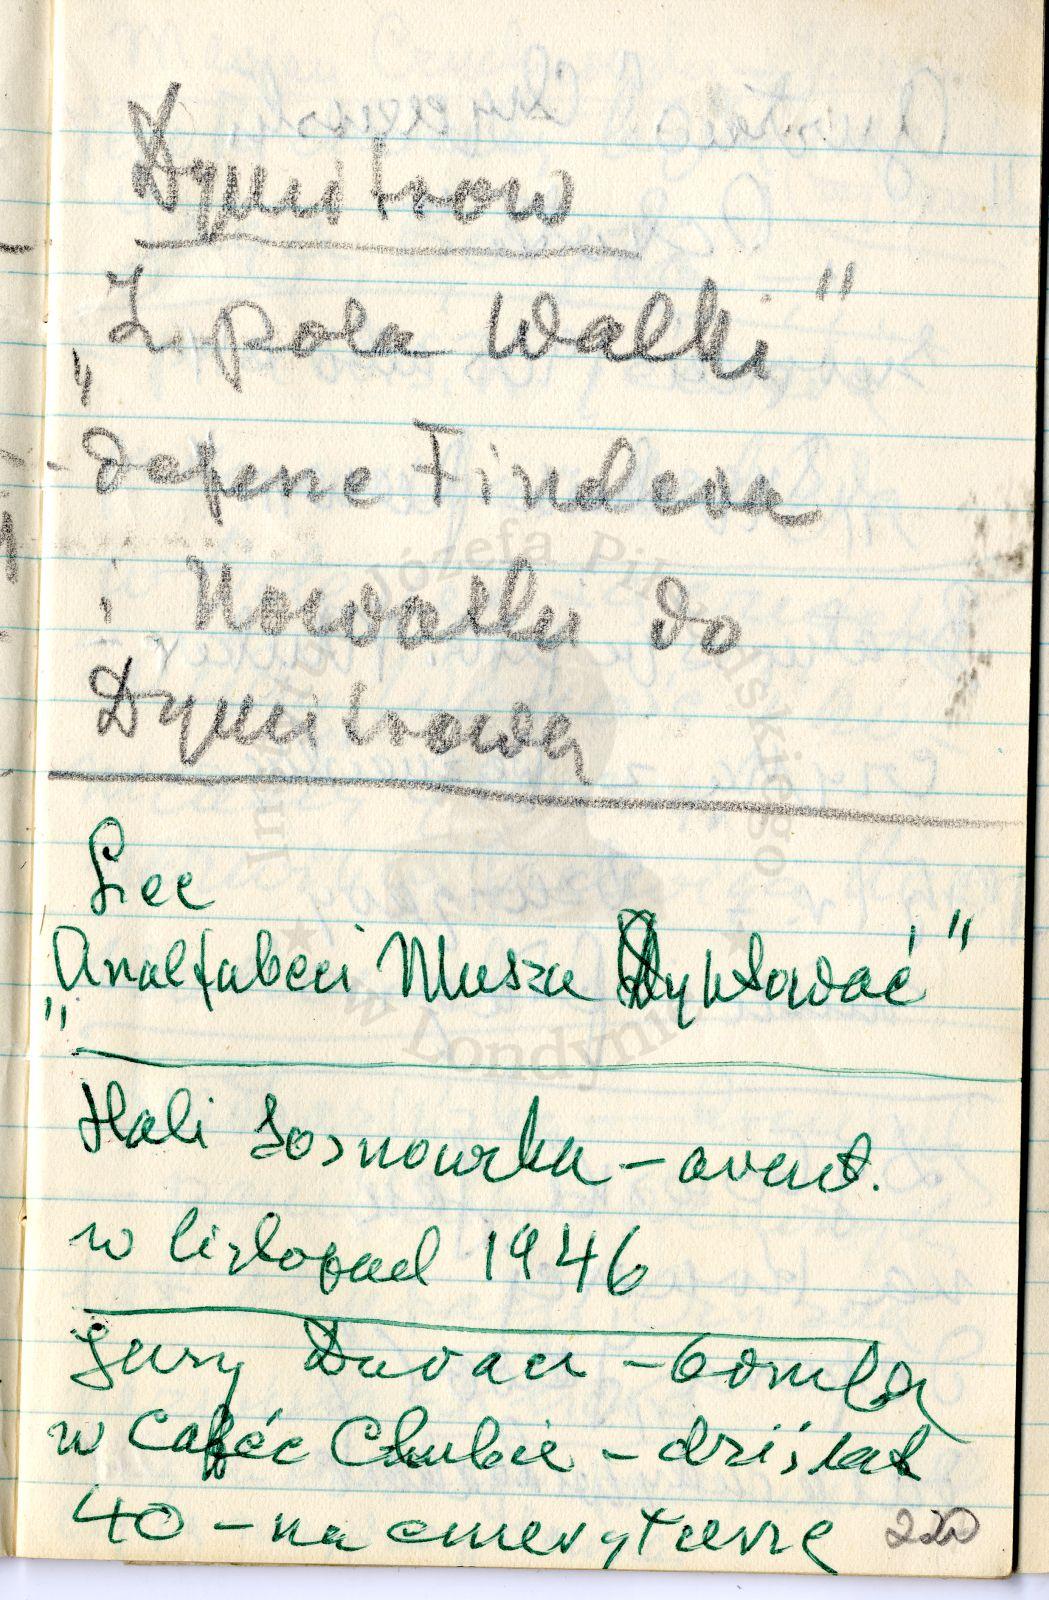 Dymitrow
„Z pola Walki"
- dajene Findera
i Nowotki do
Dymitrowa
Lec
„Analfabeci Muszą Dyktować"
Hali Sosnowska – areszt.
w listopad 1946
Jerzy Duracz – bomba
w Café Clubie – dziś lat
40 – na emeryturze
220
Instytut Józefa Piłsudskiego
w Londynie